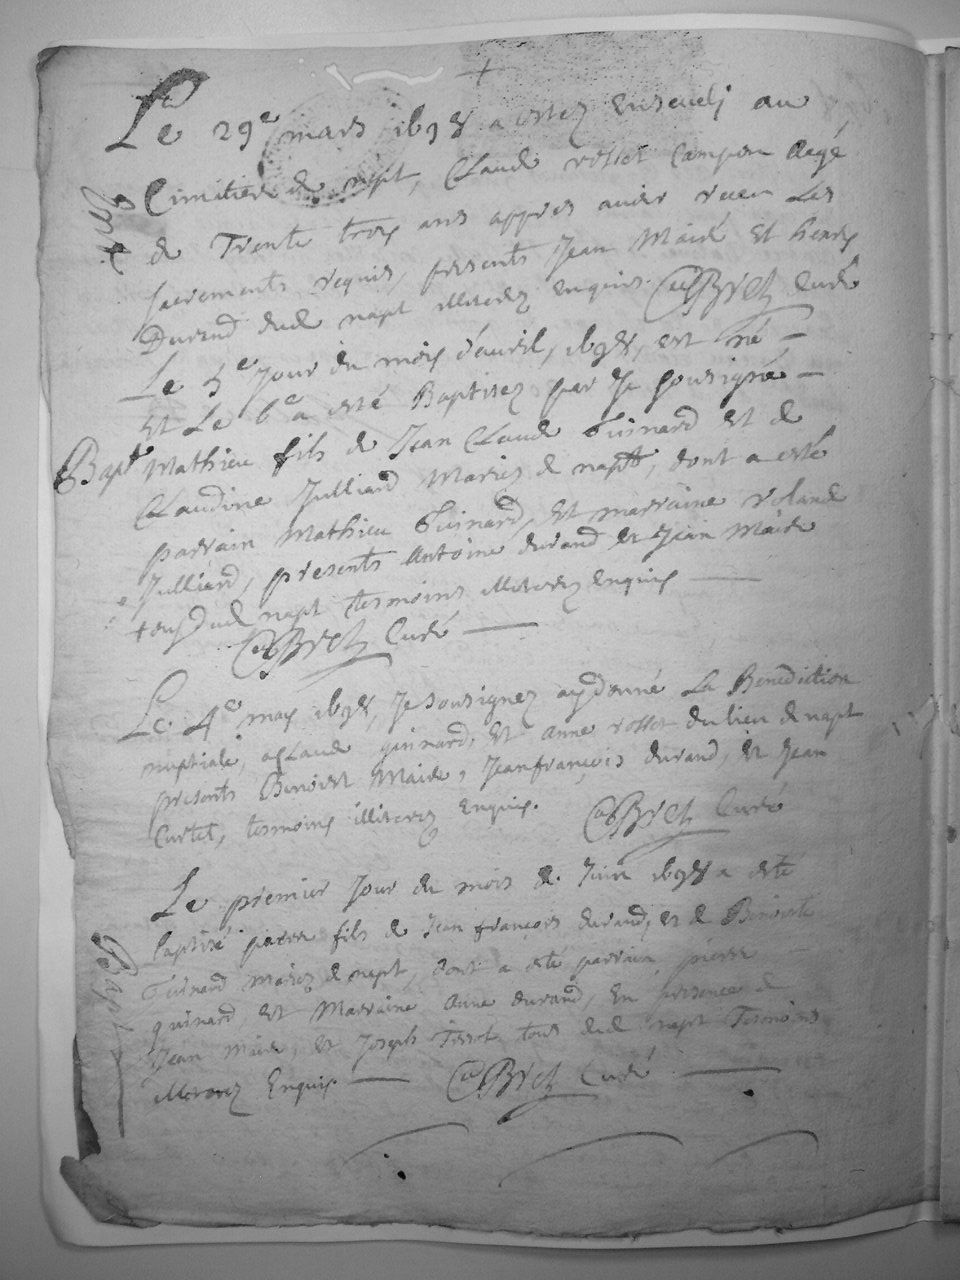 Le 29e mars 1698 a estez enseveli au
Cimitiere de napt, Claude rosset Campion Aagé
de Trente trois ans appres avoir receu Les
sacrements requis, presents Jean Maire Et henry
Durand dud napt illiterez enquis. Bret Curé
Le 5e Jour du mois d'avril, 1698, est né —
Et Le 6e a esté Baptisez par Je sousigné —
Bapt Mathieu fils de Jean Claude Guinard Et de
Claudine Julliard Mariez de napt, dont a esté
parrain Mathieu Guinard, Et marraine rolande
Julliard, presents Antoine durand Et Jean Maire
tous dud napt tesmoins illiterez enquis —
Bret Curé —
Le 4e may 1698, Je sousignez ay donné La Benediction
nuptiale, a Claude guinard, Et anne rosset du lieu de napt
presents Benoist Maire, Jean françois durand, et Jean
Curtet, tesmoins illiterez Enquis. Bret Curé
Le premier Jour du mois de Juin 1698 a esté
Baptisé pierre fils de Jean françois durand, et de Benoiste
Guinard Mariez de napt, dont a esté parrain pierre
guinard, Et Marraine Anne durand, En presence de
Jean Maire, et Joseph Tissot tous dud napt Tesmoins
illiterez Enquis — Bret Curé —
Bapt